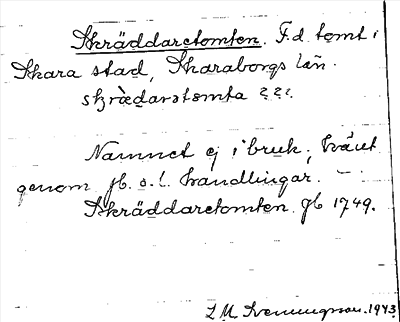 Skräddaretomten. F.d. tomt i
Skara stad, Skaraborgs län.
skrædarətomta
Namnet ej i bruk; hänt
genom jb. o. l. handlingar.
Skräddaretomten. Jb 1749.
L M Svenungsson. 1943